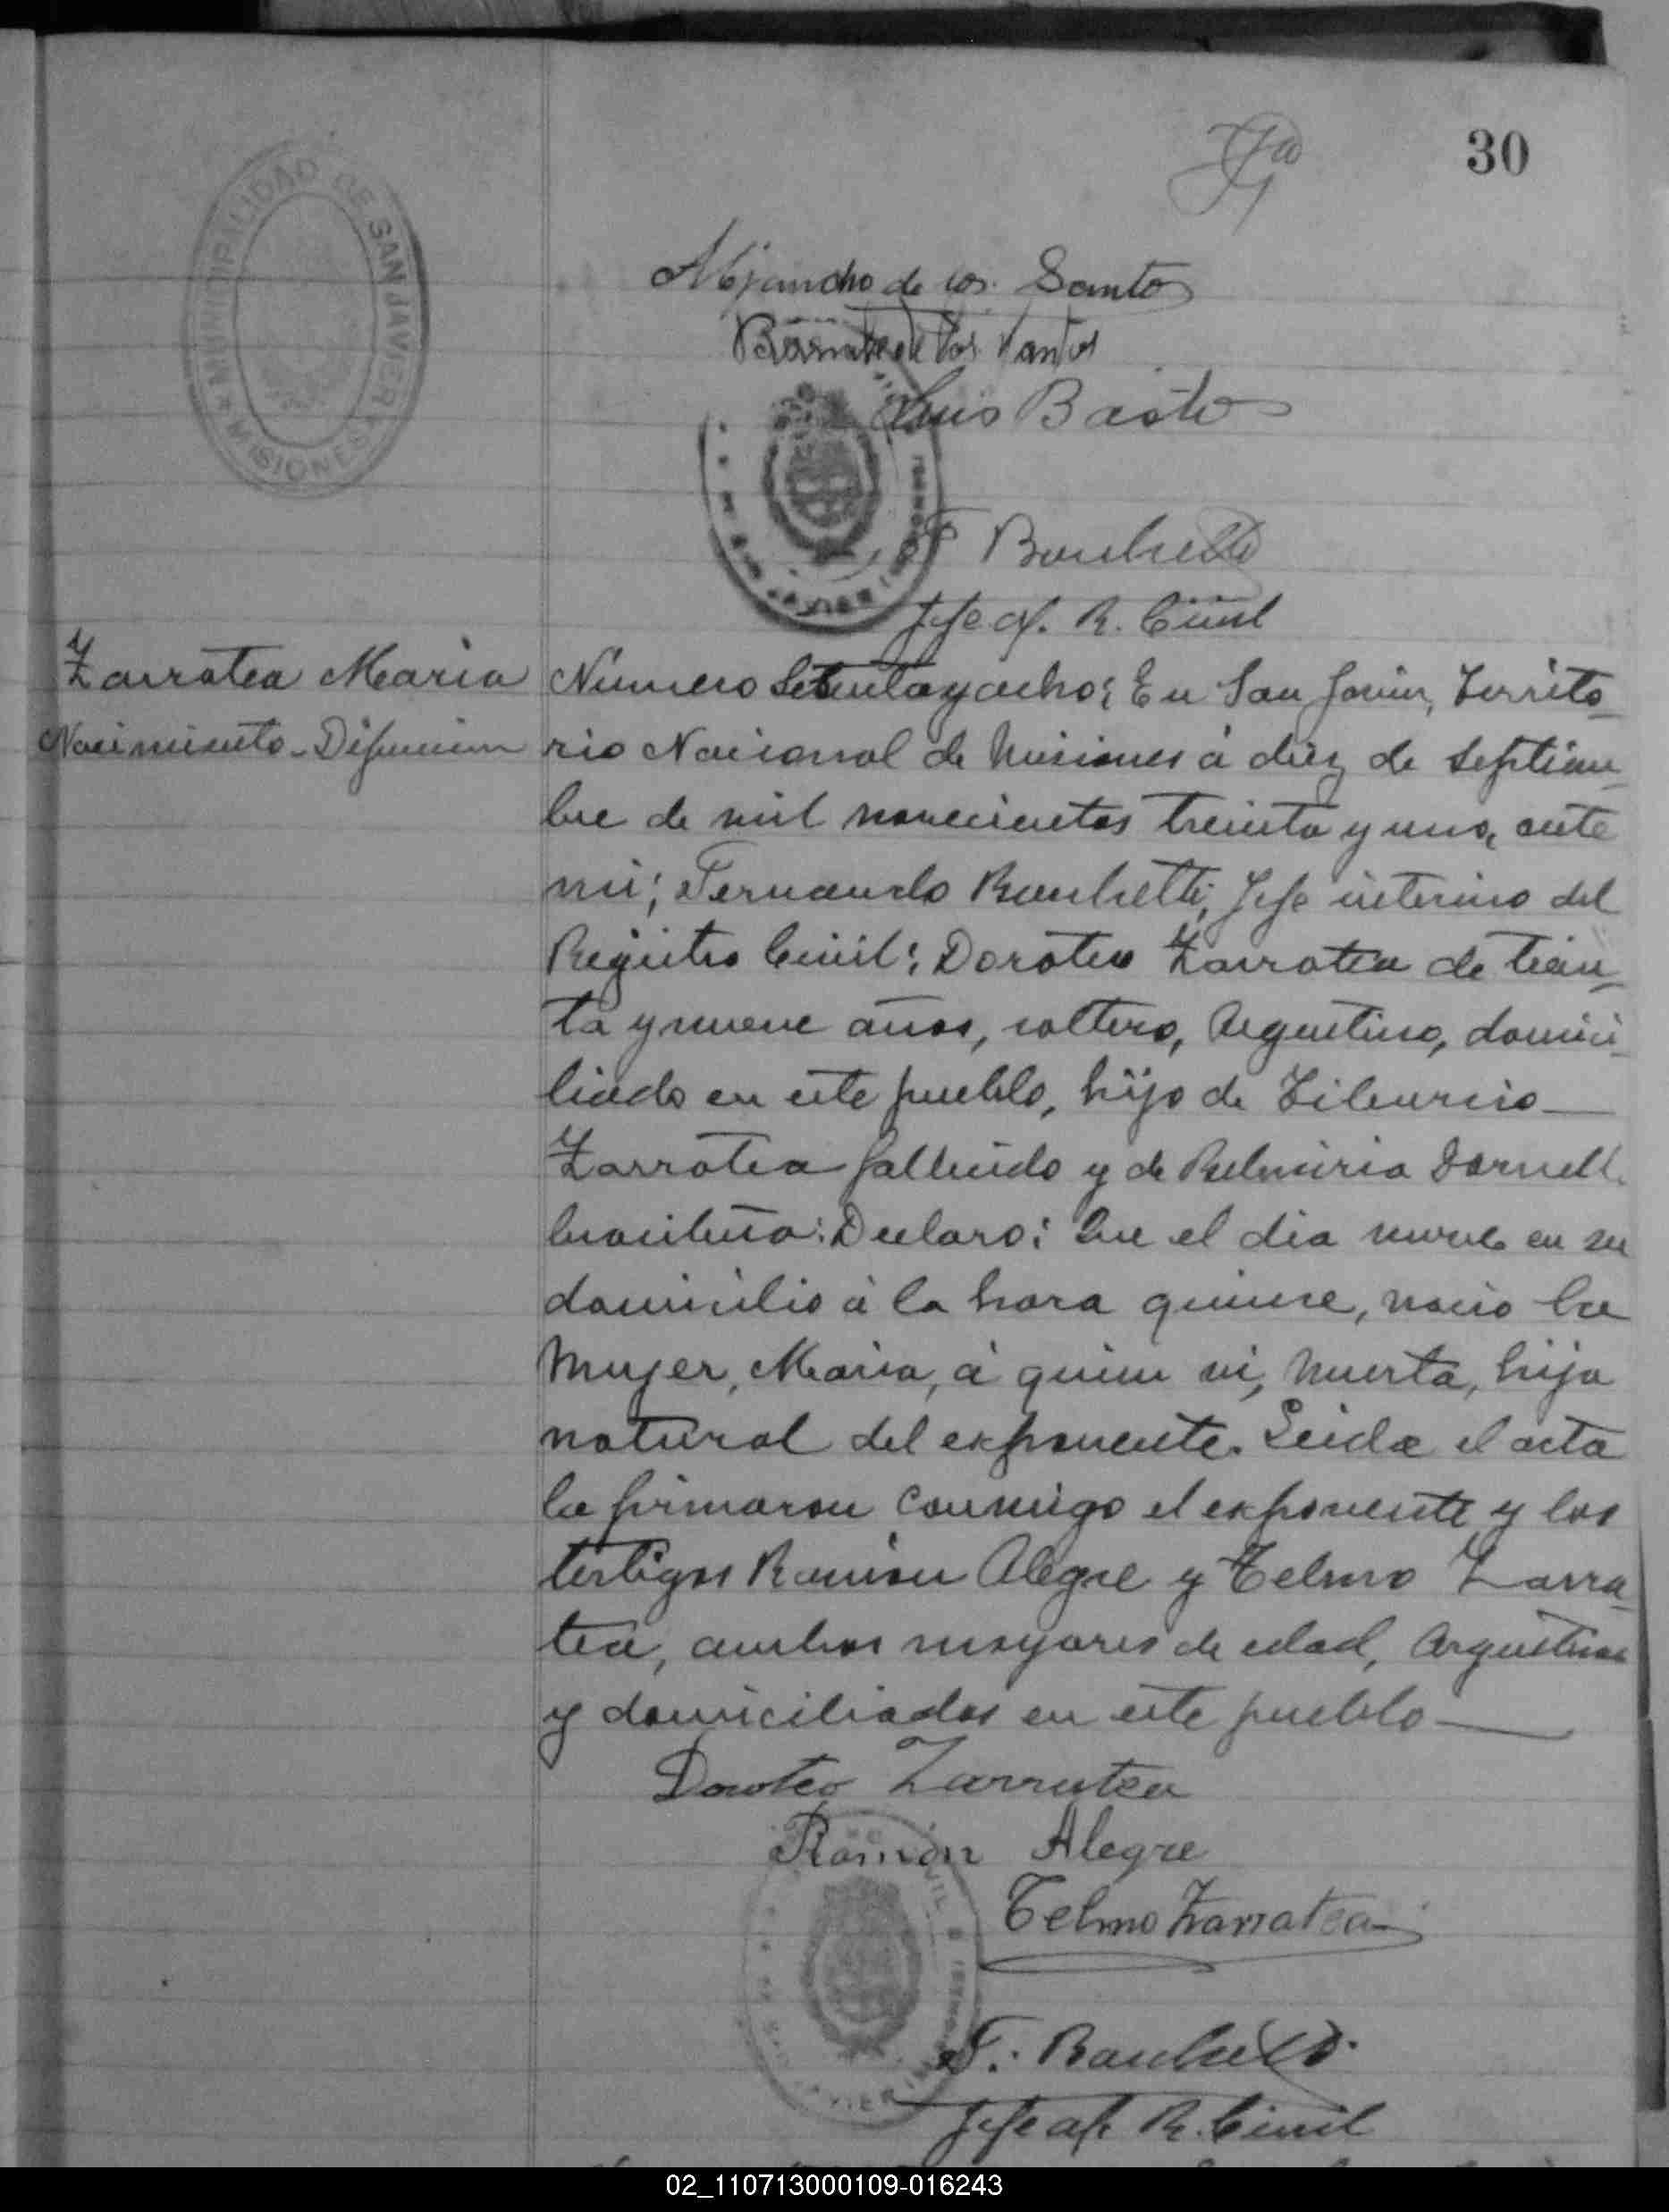 30
MUNICIPALIDAD DE SAN JAVIER
★ MISIONES ★
Alejandro de los Santos
de los Santos
Luis
F Banchetti
Jefe af. R. Civil
Zarratea Maria
Nacimiento - Difuncion
Número Setenta y ocho; En San Javier, Territo-
rio Nacional de Misiones á diez de septiem-
bre de mil novecientos treinta y uno, ante
mi; Fernando Banchetti, Jefe interino del
Registro Civil; Doroteo Zarratea de trein-
ta y nueve años, soltero, Argentino, domici-
liado en este pueblo, hijo de Tiburcio
Zarratea fallecido y de
brasileña: Declaro: Que el dia nueve en su
domicilio á la hora quince, nacio la
mujer, Maria, á quien vi, muerta, hija
natural del exponente. Leida el acta
la firmaron conmigo el exponente y los
testigos Ramón Alegre y Telmo Zarra-
tea, ambos mayores de edad, Argentinos
y domiciliados en este pueblo
Doroteo Zarratea
Ramón Alegre
Telmo Zarratea
F. Banchetti
Jefe af. R. Civil
02_110713000109-016243